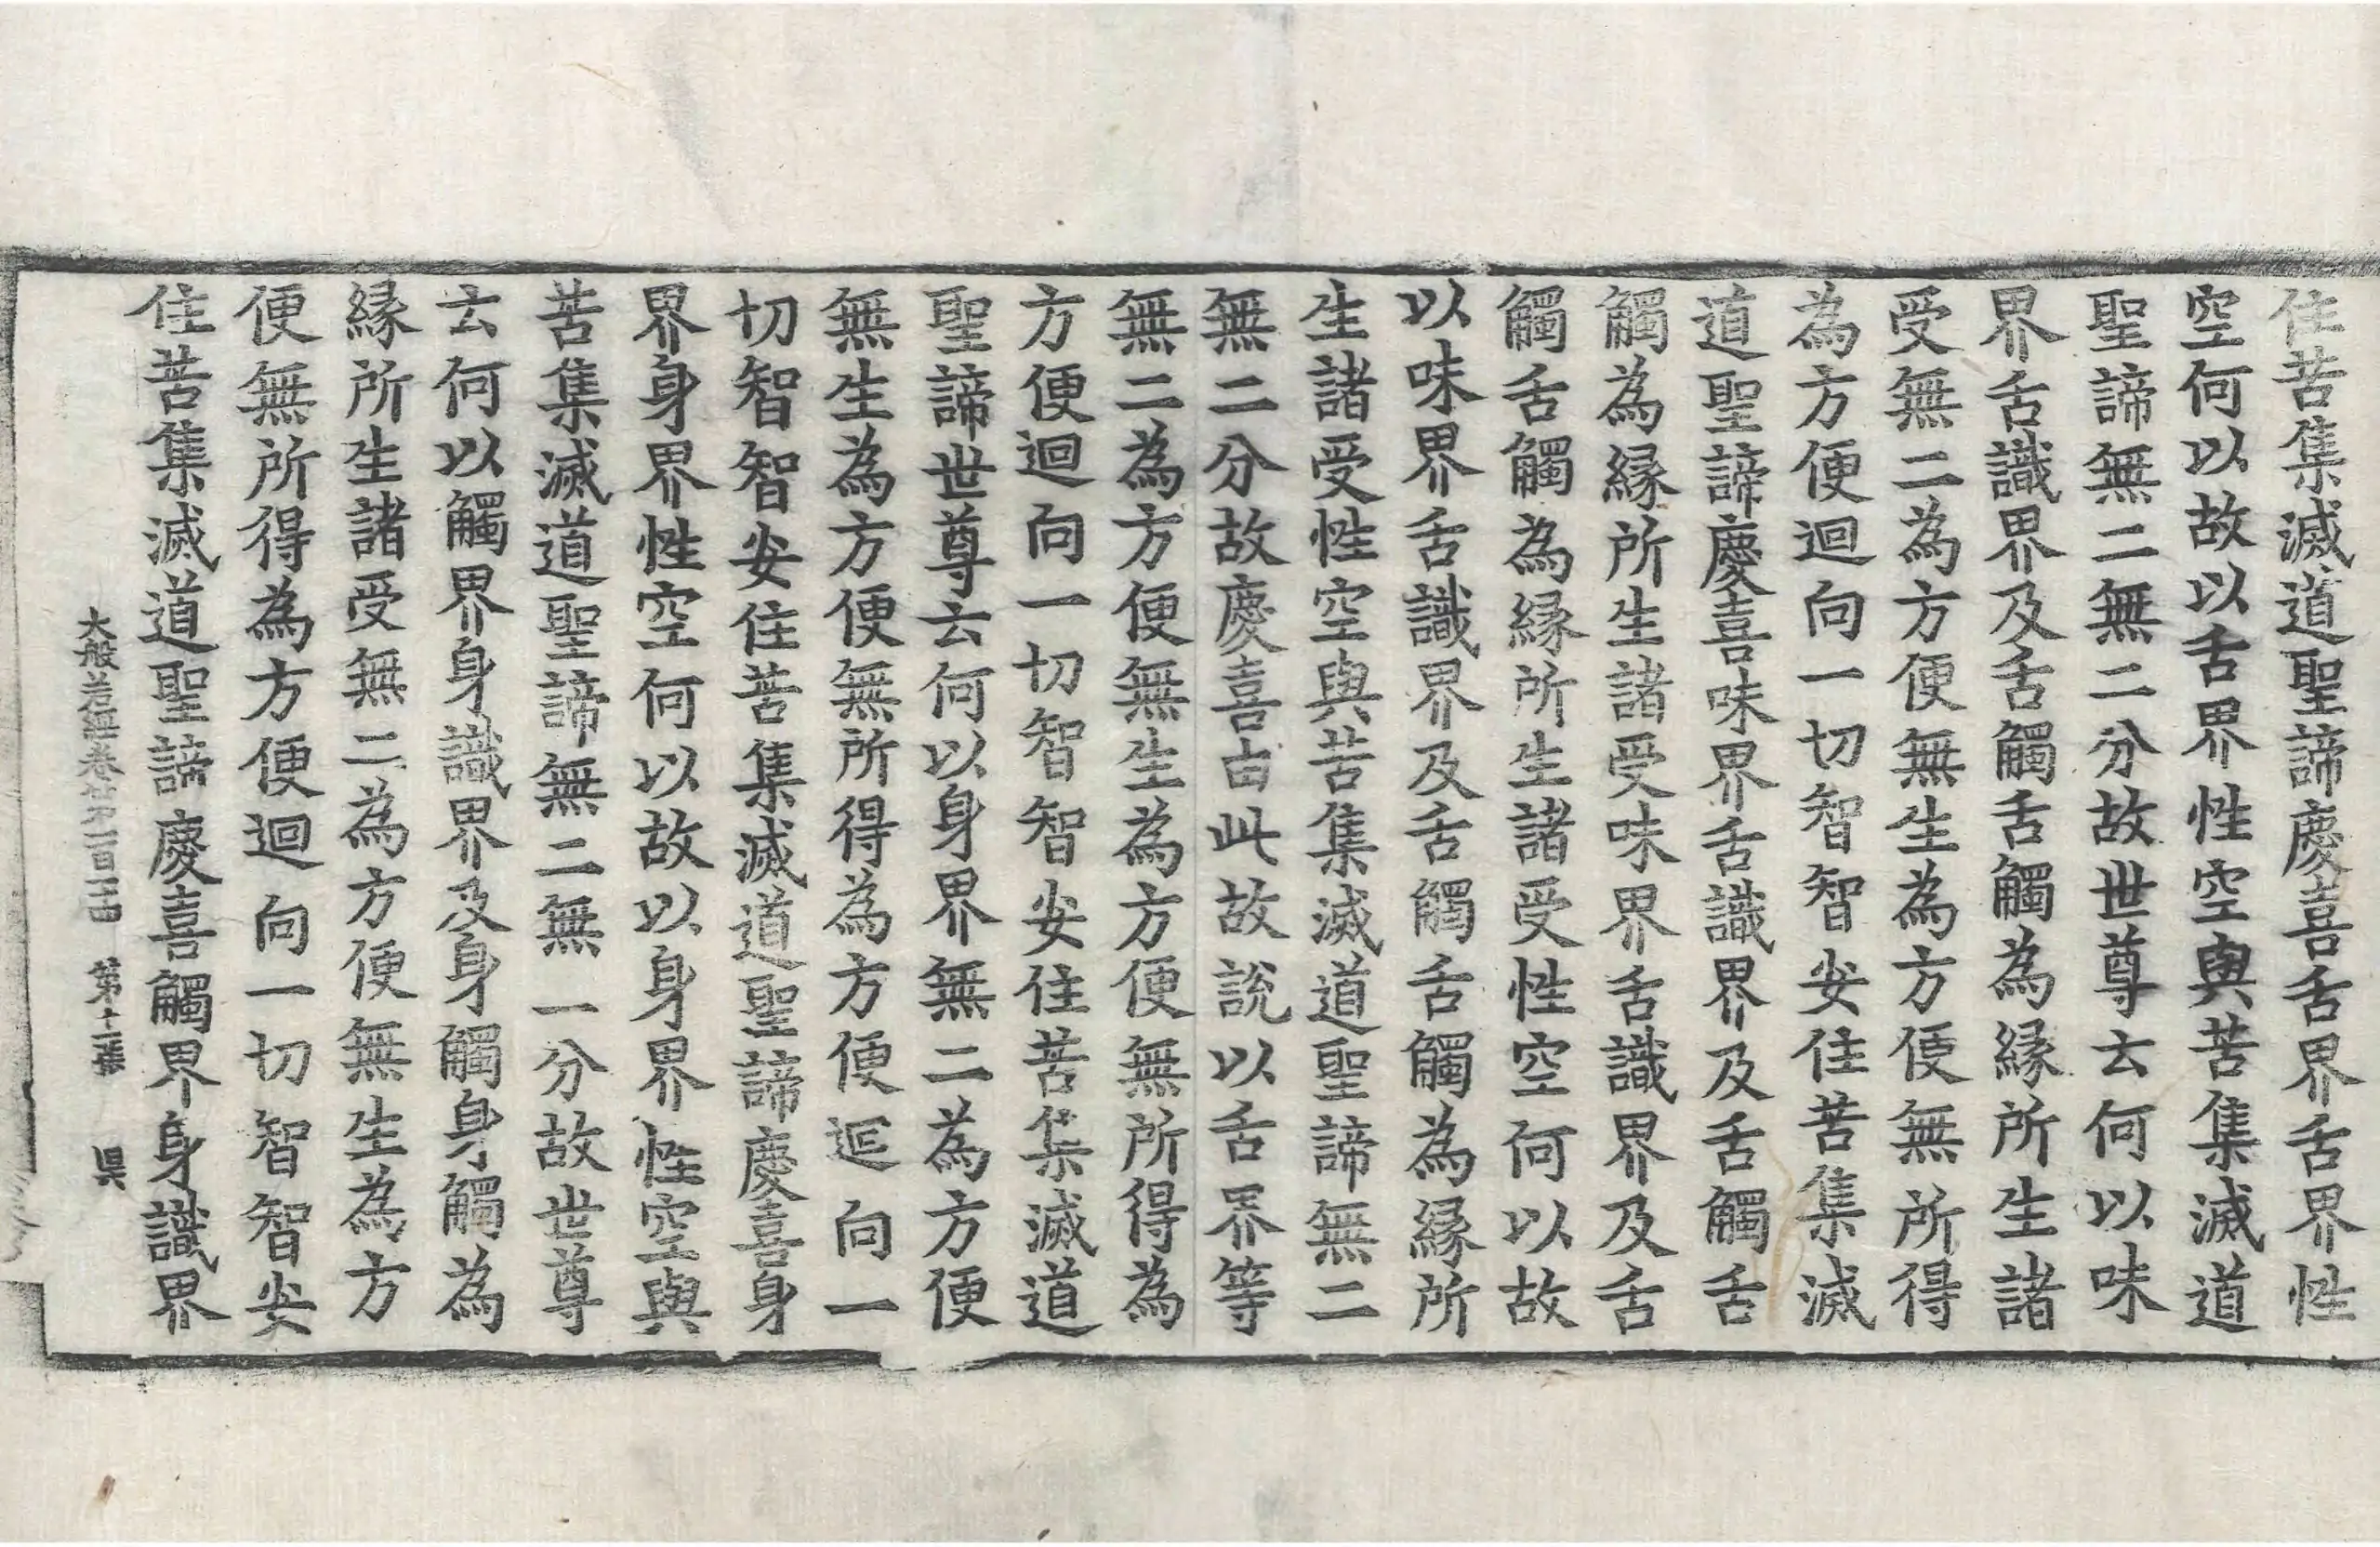 住苦集滅道聖諦慶喜舌界舌界性
空何以故以舌界性空與苦集滅道
聖諦無二無二分故世尊云何以味
界舌識界及舌觸舌觸為緣所生諸
受無二為方便無生為方便無所得
為方便迴向一切智智安住苦集滅
道聖諦慶喜味界舌識界及舌觸舌
觸為緣所生諸受味界舌識界及舌
觸舌觸為緣所生諸受性空何以故
以味界舌識界及舌觸舌觸為緣所
生諸受性空與苦集滅道聖諦無二
無二分故慶喜由此故說以舌界等
無二為方便無生為方便無所得為
方便迴向一切智智安住苦集滅道
聖諦世尊云何以身界無二為方便
無生為方便無所得為方便迴向一
切智智安住苦集滅道聖諦慶喜身
界身界性空何以故以身界性空與
苦集滅道聖諦無二無一分故世尊
云何以觸界身識界及身觸身觸為
緣所生諸受無二為方便無生為方
便無所得為方便迴向一切智智安
住苦集滅道聖諦慶喜觸界身識界
大般若經卷第一百二十四 第十二張 昃